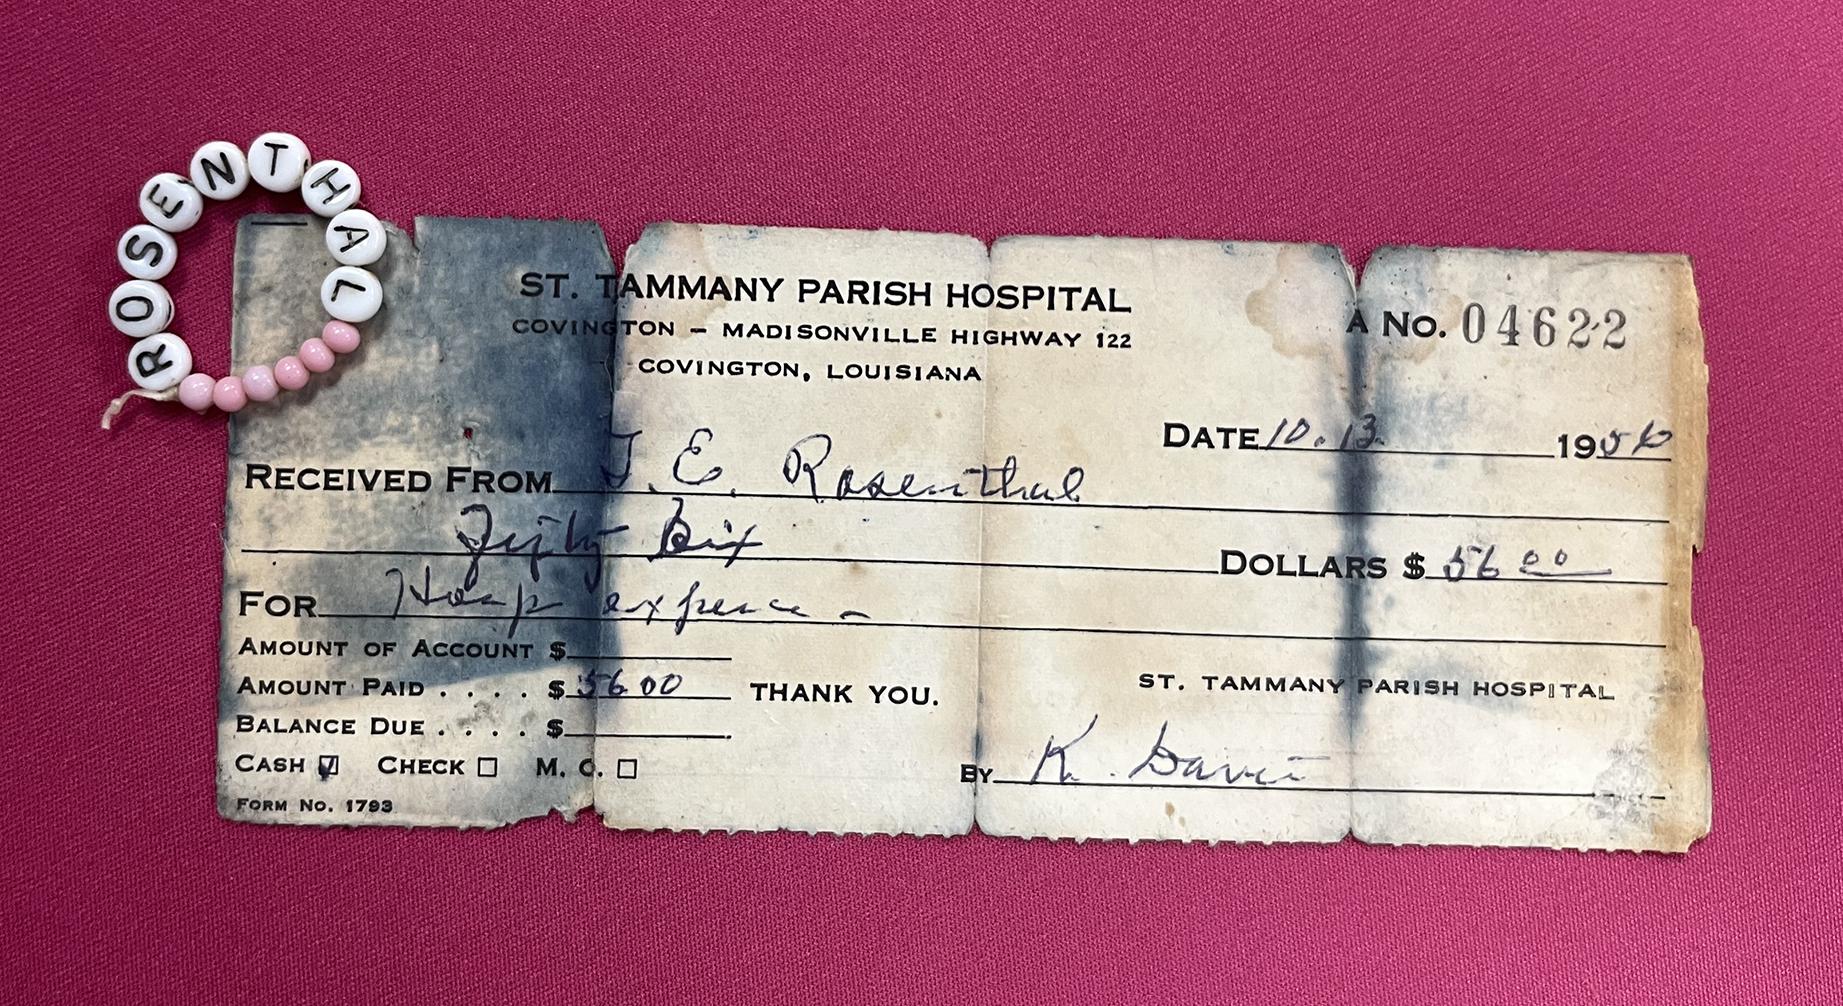 ROSENTHAL
ST. TAMMANY PARISH HOSPITAL
COVINGTON – MADISONVILLE HIGHWAY 122
COVINGTON, LOUISIANA
A No. 04622
DATE 10.13. 1956
RECEIVED FROM J. E. Rosenthal
Fifty Six DOLLARS $ 56 00
FOR Hosp expence –
AMOUNT OF ACCOUNT $
AMOUNT PAID . . . . $ 56 00 THANK YOU.
ST. TAMMANY PARISH HOSPITAL
BALANCE DUE . . . . $
CASH ☑ CHECK ☐ M. O. ☐
BY K. Davis
FORM NO. 1793